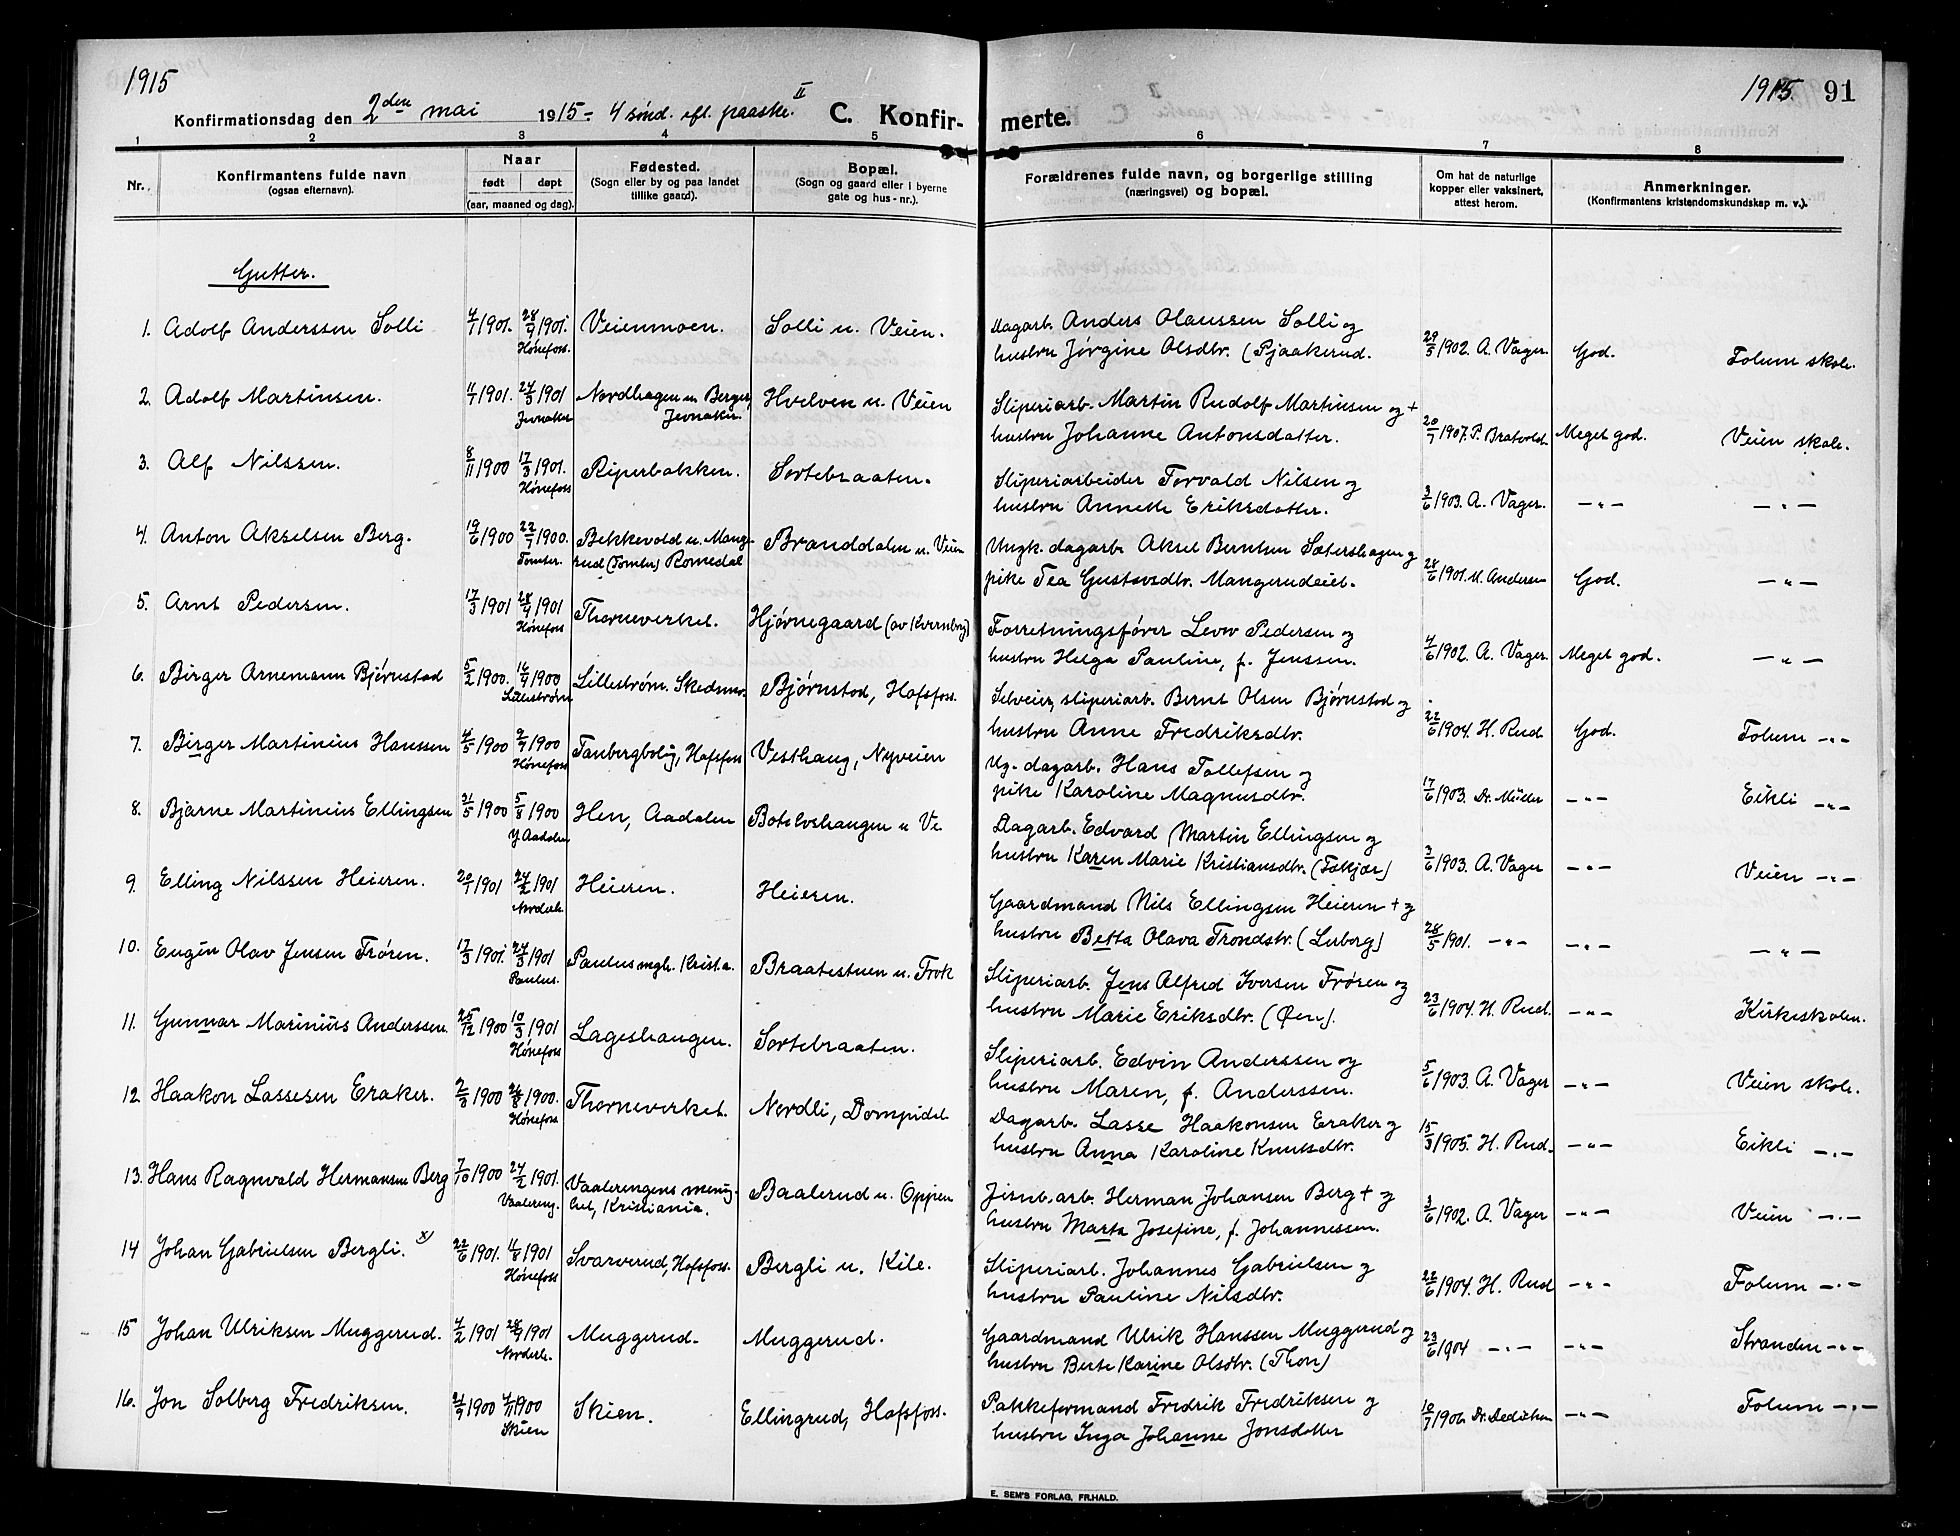 1915
Konfirmationsdag den 2den mai 1915 - 4 sønd. eft. paaske. II
C. Konfir-
1 2 3 4 5
Nr.
Konfirmantens fulde navn
(ogsaa efternavn).
Naar
født døpt
(aar, maaned og dag).
Fødested.
(Sogn eller by og paa landet
tillike gaard).
Bopæl.
(Sogn og gaard eller i byerne
gate og hus-nr.).
Gutter.
1. Adolf Anderssen Solli 4/1 1901. 28/4 1901. Hønefoss. Veienmoen. Solli u. Veien.
2. Adolf Martinsen. 11/1 1901. 24/3 1901 Jevnaker Nordhagen u. Berger, Jevnaker. Hvelven u. Veien
3. Alf Nilssen. 8/11 1900 17/3 1901. Hønefoss Riperbakken. Sortebraaten.
4. Anton Akselsen Berg. 19/6 1900 22/7 1900. Tomter. Bekkevold u. Mang-
rud (Tomter) Romedal Branddalen u. Veien
5. Arnt Pedersen. 17/3 1901 28/4 1901 Hønefoss Thorneverket. Hjørnegaard (av Kvernberg)
6. Birger Arnemann Bjørnstad 5/2 1900. 16/4 1900 Lillestrøm Lillestrøm. Skedsmo. Bjørnstad, Hofsfoss.
7. Birger Martinius Hanssen 4/5 1900 2/7 1900 Hønefoss Tanbergbolig, Hofsfoss Vesthaug, Nyveien
8. Bjarne Martinius Ellingsen 31/5 1900 5/8 1900 Y. Aadalen Hen, Aadalen Botolvshaugen u Ve
9. Elling Nilssen Heieren. 20/1 1901 24/2 1901 Norderh. Heieren. Heieren.
10. Eugén Olav Jensen Frøren. 17/3 1901. 24/3 1901 Paulus. Paulus mgh. Krist.a. Braatestuen u. Frok
11. Gunnar Marinius Anderssen. 25/12 1900 10/3 1901 Hønefoss Lageshaugen. Sortebraaten.
12. Haakon Lassesen Eraker. 2/3 1900 26/8 1900. Hønefoss Thorneverket. Nordli, Dompidel
13. Hans Ragnvald Hermansen Berg 7/10 1900 24/2 1901. Vaalereng. Vaalerengens menig-
het, Kristiania. Baalerud u. Oppen
14 Johan Gabrielsen Bergli. x) 22/6 1901. 11/8 1901 Hønefoss Svarverud, Hofsfoss. Bergli u. Kile.
15 Johan Ulriksen Muggerud. 4/2 1901 28/4 1901 Norderh. Muggerud. Muggerud.
16. Jon Solberg Fredriksen. 24/9 1900 4/11 1900 Skien Skien. Ellingrud, Hofsfoss.
1915 91
merte.
6 7 8
Forældrenes fulde navn, og borgerlige stilling
(næringsvei) og bopæl.
Om hat de naturlige
kopper eller vaksinert,
attest herom.
Anmerkninger.
(Konfirmantens kristendomskundskap m. v.).
Dagarb. Anders Olaussen Solli og
hustru Jørgine Olsdtr. (Pjaakerud. 29/5 1902. A. Vager. God. Folum skole.
Sliperiarb. Martin Rudolf Martinsen og +
hustru Johanne Antonsdatter. 20/7 1907. P. Bratvold. Meget god. Veien skole.
Sliperiarbeider Torvald Nilsen og
hustru Annette Eriksdatter. 3/6 1903. A. Vager. — " — — " —
Ungk. dagarb. Aksel Berntsen Sætershagen og
pike Tea Gustavsdtr. Mangerudeiet. 28/6 1901. M. Andersen God. — " —
Forretningsfører Levor Pedersen og
hustru Helga Pauline, f. Jenssen. 4/6 1902. A. Vager. Meget god. — " —
Selveier, sliperiarb. Bernt Olsen Bjørnstad og
hustru Anne Fredriksdtr. 22/6 1904. H. Rud. God. Folum — " —
Ug. dagarb. Hans Tollefsen og
pike Karoline Magnusdtr. 17/6 1903. Dr. Müller — " — Eikli — " —
Dagarb. Edvard Martin Ellingsen og
hustru Karen Marie Kristiansdtr. (Foskjær) 3/6 1903. A. Vager — " — Veien — " —
Gaardmand Nils Ellingsen Heieren + og
hustru Betta Olava Trondstr. (Luborg) 28/5 1901. — " — — " — — " —
Sliperiarb. Jens Alfred Iversen Frøren og
hustru Marie Eriksdtr. (Øen). 23/6 1904. H. Rud. — " — Kirkeskolen.
Sliperiarb. Edvin Anderssen og
hustru Maren, f. Anderssen. 5/6 1903. A. Vager — " — Veien skole.
Dagarb. Lasse Haakonsen Eraker og
hustru Anna Karoline Knutsdtr. 15/3 1905. H. Rud. — " — Eikli — " —
Jernb.arb. Herman Johansen Berg + og
hustru Marta Josefine, f. Johannessen. 3/6 1902. A. Vager — " — Veien — " —
Sliperiarb. Johannes Gabrielsen og
hustru Pauline Nilsdtr. 22/6 1904. H. Rud — " — Folum — " —
Gaardmand Ulrik Hanssen Muggerud og
hustru Berte Karine Olsdtr. (Thon) 23/6 1904 — " — — " — Stranden — " —
Pakkeformand Fredrik Fredriksen og
hustru Inga Johanne Jonsdatter 10/7 1906. Dr. Dedichen — " — Folum — " —
E. SEM'S FORLAG, FR.HALD.